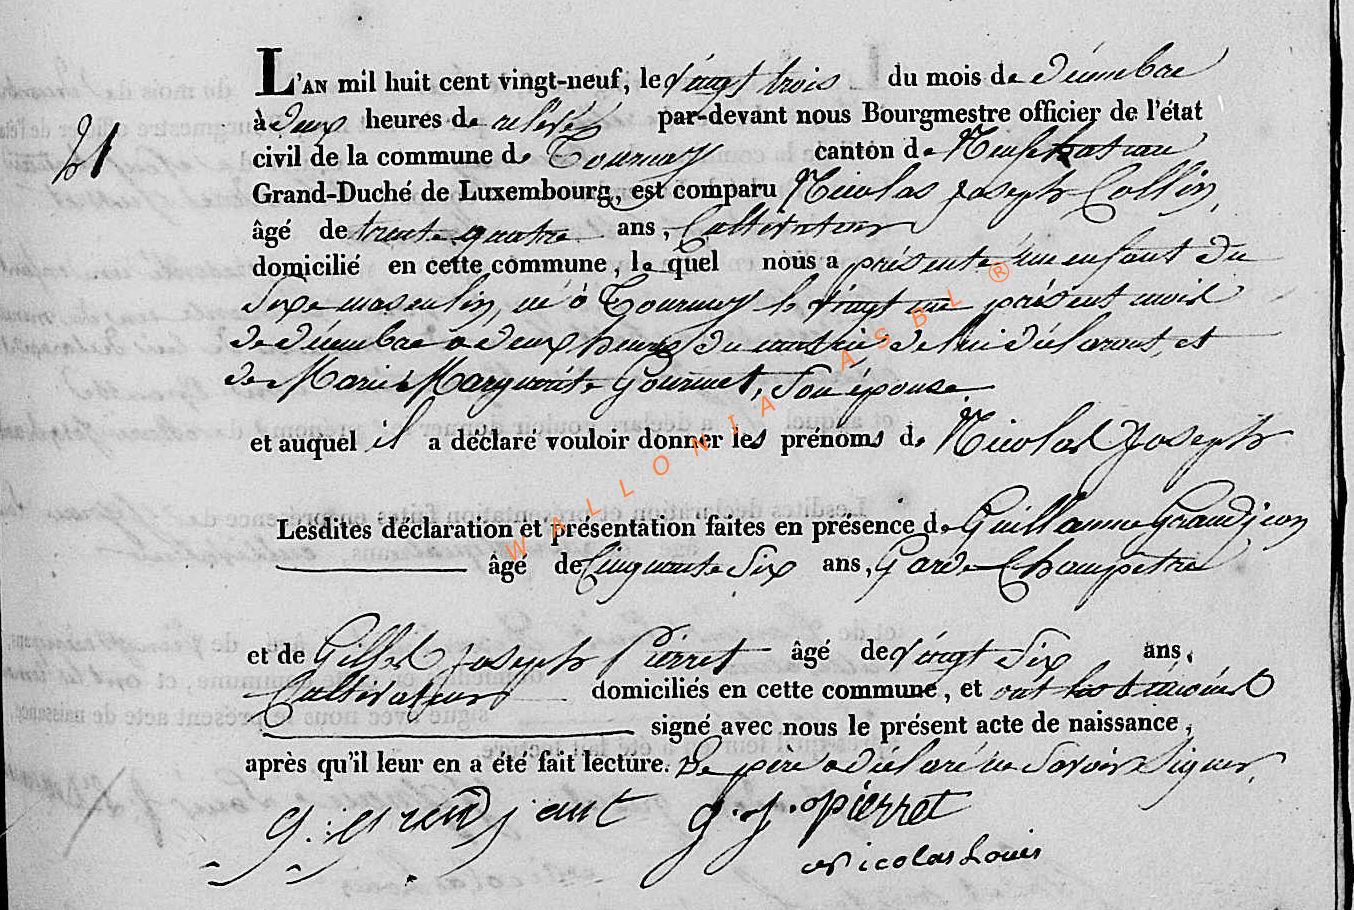 L'AN mil huit cent vingt-neuf, le vingt trois du mois de décembre
à deux heures de relevée par-devant nous Bourgmestre officier de l'état
21
civil de la commune de Tournay canton de Neufchateau
Grand-Duché de Luxembourg, est comparu Nicolas Joseph Collin,
âgé de trente quatre ans, Cultivateur
domicilié en cette commune, lequel nous a présenté un enfant du
Sexe masculin, né à Tournay le vingt un présent mois
de décembre a deux heures du matin, de lui déclarant, et
de Marie Marguerite Gourmet, Son épouse
et auquel il a déclaré vouloir donner les prénoms de Nicolas Joseph
Lesdites déclaration et présentation faites en présence de Guillaume Grandjean
âgé de Cinquante Six ans, Garde Champêtre
et de Gilles Joseph Pierret âgé de vingt Six ans,
Cultivateur domiciliés en cette commune, et ont les témoins
signé avec nous le présent acte de naissance,
après qu'il leur en a été fait lecture. Le père a déclaré ne Savoir Signer.
g. grandjant g. j. pierret
Nicolas Louis
WALLONIA ASBL ®